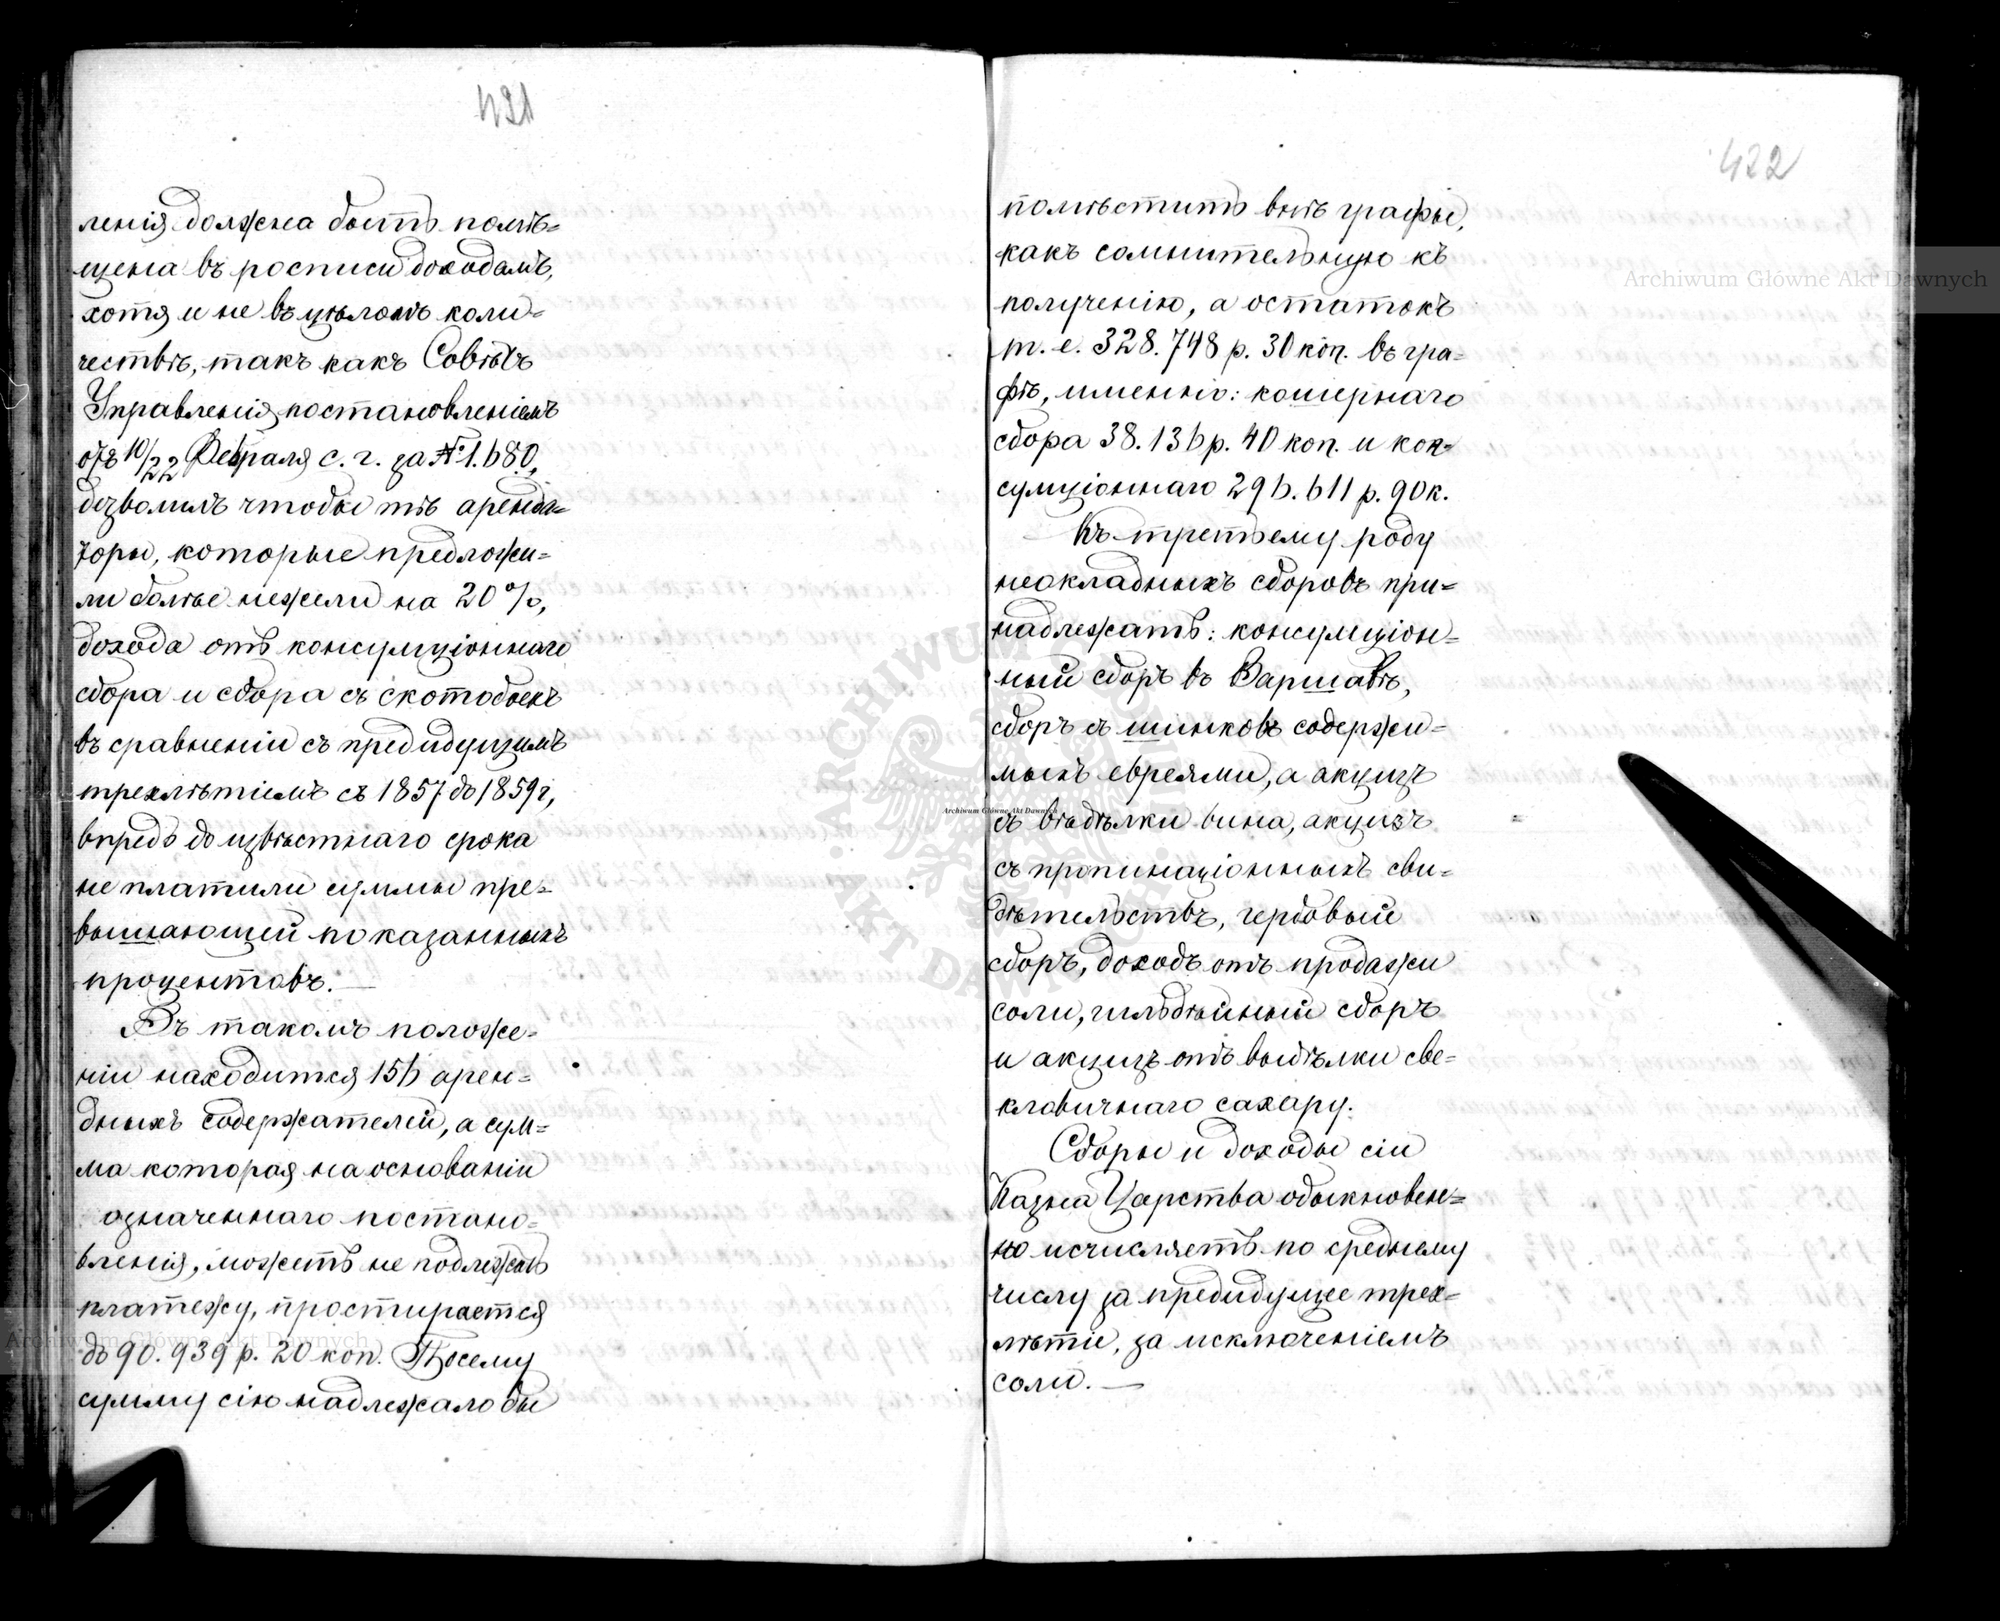 421
ленія должна быть помѣ=
щена въ росписи доходамъ,
хотя и не въ цѣломъ коли=
чествѣ, такъ какъ Совѣтъ
Управленія, постановленіемъ
отъ 10/22 Февраля с. г. за № 1.680,
дозволилъ чтобы тѣ аренда=
торы, которые предложи=
ли болѣе нежели на 20%,
дохода отъ консумціоннаго
сбора и сбора съ скотобоенъ
въ сравненіи съ предидущимъ
трехлѣтіемъ съ 1857 до 1859 г,
впредь до извѣстнаго срока
не платили суммы пре=
вышающей показанныхъ
процентовъ. —
Въ такомъ положе=
ніи находится 156 арен=
дныхъ содержателей, а сум=
ма которая на основаніи
означеннаго постано=
вленія, можетъ не подлежать
платежу, простирается
до 90.939 р. 20 коп. Посему
сумму сію надлежало бы
422
помѣстить внѣ графы,
какъ сомнительную къ
полученію, а остатокъ
т. е. 328.748 р. 30 коп. въ гра=
фѣ, именно: кошернаго
сбора 38.136 р. 40 коп. и кон=
сумціоннаго 296.611 р. 90 к.
Къ третьему роду
неокладныхъ сборовъ при=
надлежатъ: консумціон=
ный сборъ въ Варшавѣ,
сборъ съ шинковъ содержи=
мыхъ евреями, а акцизъ
съ выдѣлки вина, акцизъ
съ пропинаціонныхъ сви=
дѣтельствъ, гербовый
сборъ, доходъ отъ продажи
соли, гильдѣйный сборъ
и акцизъ отъ выдѣлки све=
кловичнаго сахару.
Сборы и доходы сіи
Казна Царства обыкновен=
но исчисляетъ по среднему
числу за предидущее трех=
лѣтіе, за исключеніемъ
соли. —
Archiwum Główne Akt Dawnych
Archiwum Główne Akt Dawnych
Archiwum Główne Akt Dawnych
ARCHIWUM GŁÓWNE
AKT DAWNYCH